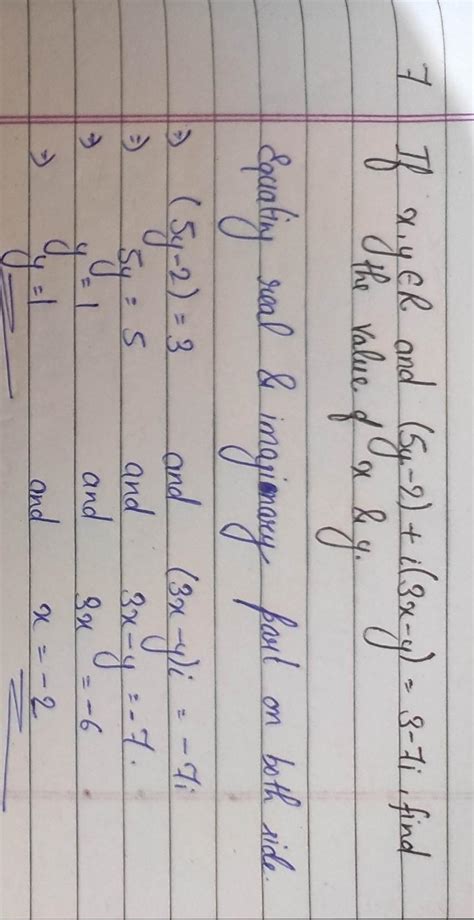 7 If x, y ∈ R and (5y-2) + i(3x-y) = 3-7i, find
the value of x & y.
Equating real & imaginary part on both side.
⇒ (5y-2) = 3 and (3x-y)i = -7i
⇒ 5y = 5 and 3x-y = -7.
⇒ y = 1 and 3x = -6
⇒ y = 1 and x = -2